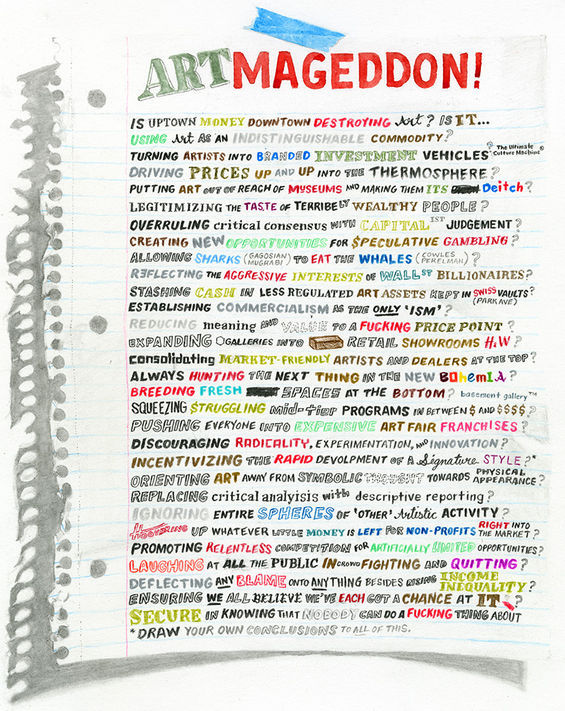 ARTMAGEDDON!
IS UPTOWN MONEY DOWNTOWN DESTROYING Art? IS IT...
USING Art AS AN INDISTINGUISHABLE COMMODITY?
TURNING ARTISTS INTO BRANDED INVESTMENT VEHICLES? "The Ultimate Culture Machine"
DRIVING PRICES UP AND UP INTO THE THERMOSPHERE?
PUTTING ART OUT OF REACH OF MUSEUMS AND MAKING THEM ITS Deitch?
LEGITIMIZING THE TASTE OF TERRIBLY WEALTHY PEOPLE?
OVERRULING critical consensus WITH CAPITALIST JUDGEMENT?
CREATING NEW OPPORTUNITIES FOR $PECULATIVE GAMBLING?
ALLOWING SHARKS (GAGOSIAN MUGRABI) TO EAT THE WHALES (COWLES PERELMAN)?
REFLECTING THE AGGRESSIVE INTERESTS OF WALL ST BILLIONAIRES?
STASHING CASH IN LESS REGULATED ART ASSETS KEPT IN SWISS VAULTS? (PARK AVE)
ESTABLISHING COMMERCIALISM AS THE ONLY 'ISM'?
REDUCING meaning AND VALUE TO A FUCKING PRICE POINT?
EXPANDING GALLERIES INTO RETAIL SHOWROOMS H&W?
consolidating MARKET-FRIENDLY ARTISTS AND DEALERS AT THE TOP?
ALWAYS HUNTING THE NEXT THING IN THE NEW BOHEMIA?
BREEDING FRESH SPACES AT THE BOTTOM? basement gallery™
SQUEEZING $TRUGGLING mid-tier PROGRAMS IN BETWEEN $ AND $$$$?
PUSHING EVERYONE INTO EXPENSIVE ART FAIR FRANCHISES?
DISCOURAGING RADICALITY, EXPERIMENTATION, AND INNOVATION?
INCENTIVIZING THE RAPID DEVOLPMENT OF A Signature STYLE?*
ORIENTING ART AWAY FROM SYMBOLIC THOUGHT TOWARDS PHYSICAL APPEARANCE?
REPLACING critical analyisis with descriptive reporting?
IGNORING ENTIRE SPHERES OF 'OTHER' Artistic ACTIVITY?
HOOVERING UP WHATEVER LITTLE MONEY IS LEFT FOR NON-PROFITS RIGHT INTO THE MARKET?
PROMOTING RELENTLESS COMPETITION FOR ARTIFICIALLY LIMITED OPPORTUNITIES?
LAUGHING AT ALL THE PUBLIC INCROWD FIGHTING AND QUITTING?
DEFLECTING ANY BLAME ONTO ANYTHING BESIDES RISING INCOME INEQUALITY?
ENSURING WE ALL BELIEVE WE'VE EACH GOT A CHANCE AT IT?
SECURE IN KNOWING THAT NOBODY CAN DO A FUCKING THING ABOUT
*DRAW YOUR OWN CONCLUSIONS TO ALL OF THIS.